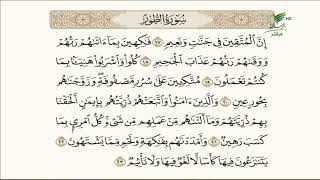 سُورَةُ الطُّورِ
إِنَّ الْمُتَّقِينَ فِي جَنَّاتٍ وَنَعِيمٍ ١٧ فَاكِهِينَ بِمَا آتَاهُمْ رَبُّهُمْ
وَوَقَاهُمْ رَبُّهُمْ عَذَابَ الْجَحِيمِ ١٨ كُلُوا وَاشْرَبُوا هَنِيئًا بِمَا
كُنْتُمْ تَعْمَلُونَ ١٩ مُتَّكِئِينَ عَلَى سُرُرٍ مَصْفُوفَةٍ وَزَوَّجْنَاهُمْ
بِحُورٍ عِينٍ ٢٠ وَالَّذِينَ آمَنُوا وَاتَّبَعَتْهُمْ ذُرِّيَّتُهُمْ بِإِيمَانٍ أَلْحَقْنَا
بِهِمْ ذُرِّيَّتَهُمْ وَمَا أَلَتْنَاهُمْ مِنْ عَمَلِهِمْ مِنْ شَيْءٍ كُلُّ امْرِئٍ بِمَا
كَسَبَ رَهِينٌ ٢١ وَأَمْدَدْنَاهُمْ بِفَاكِهَةٍ وَلَحْمٍ مِمَّا يَشْتَهُونَ ٢٢
يَتَنَازَعُونَ فِيهَا كَأْسًا لَا لَغْوٌ فِيهَا وَلَا تَأْثِيمٌ ٢٣